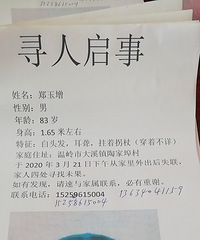 寻人启事
姓名：郑玉增
性别：男
年龄：83岁
身高：1.65米左右
特征：白头发，耳聋，拄着拐杖（穿着不详）
家庭住址：温岭市大溪镇陶家埠村
于2020年3月21日下午从家里外出后失联，
家人四处寻找未果。
如有发现，请速与家属联系，必有重谢。
联系电话：15259615004 13634041159
15258615004